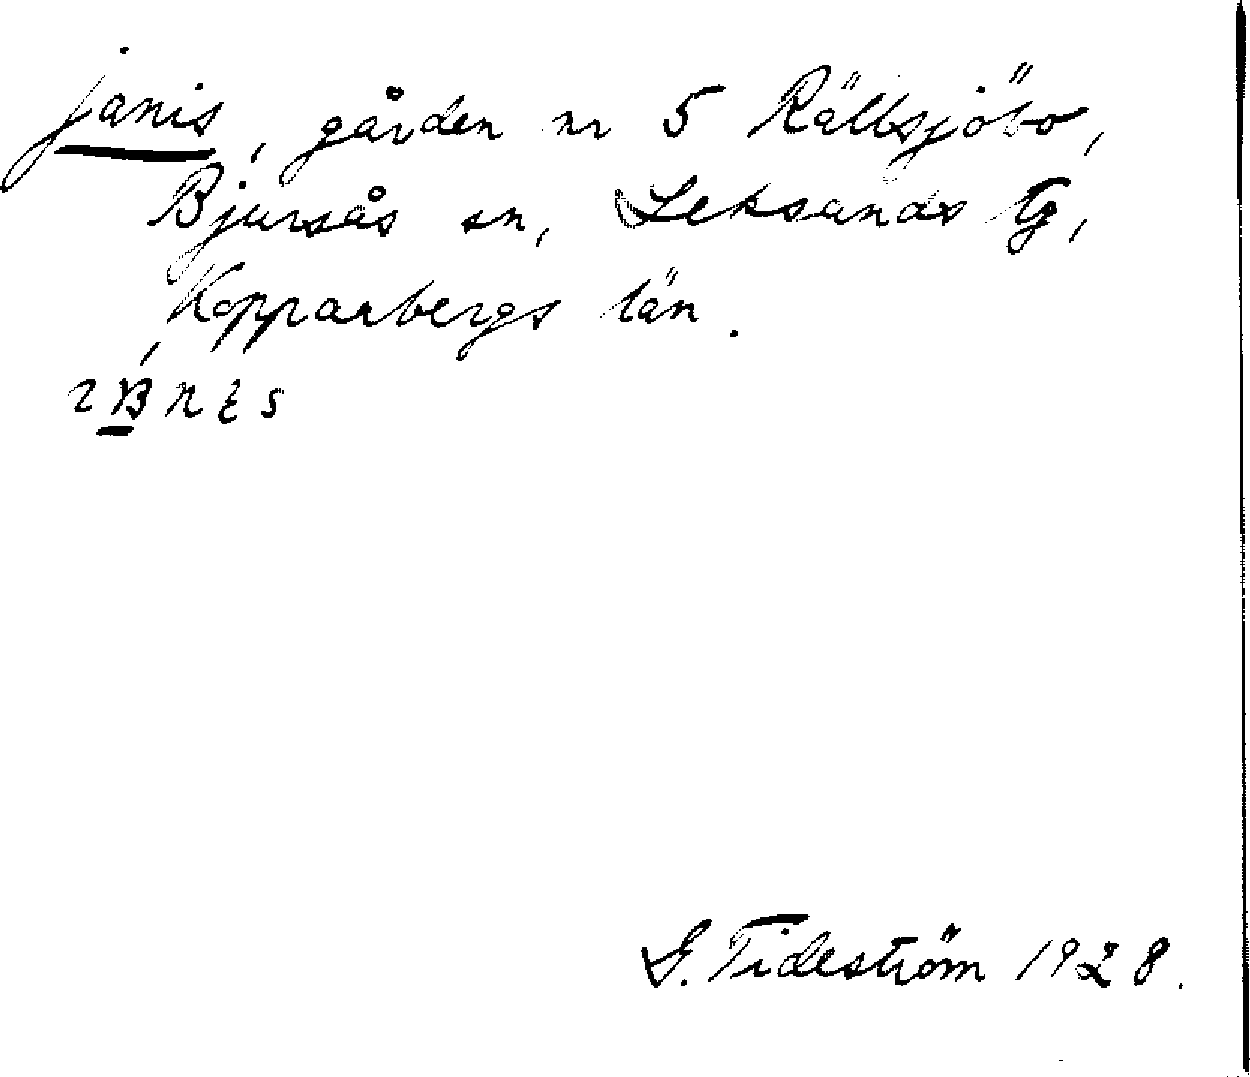 janis, gården nr 5 Rällsjöbo,
Bjursås sn, Leksands tg,
Kopparbergs län.
G. Tideström 1928.